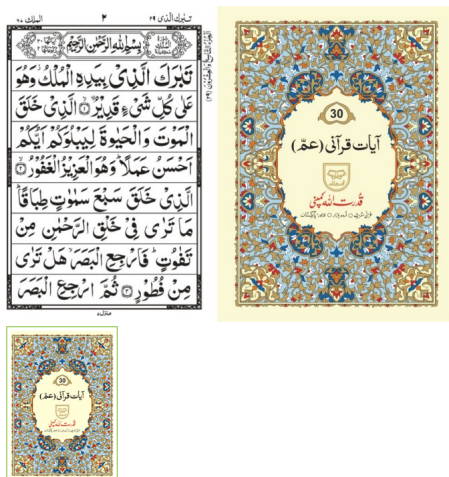 تبٰرك الذی ۲۹
۲
الملك ۶۷
بِسْمِ اللّٰهِ الرَّحْمٰنِ الرَّحِیْمِ
تَبٰرَكَ الَّذِیْ بِیَدِهِ الْمُلْكُ وَهُوَ
عَلٰی كُلِّ شَیْءٍ قَدِیْرُ ۙ﴿۱﴾ الَّذِیْ خَلَقَ
الْمَوْتَ وَالْحَیٰوةَ لِیَبْلُوَكُمْ اَیُّكُمْ
اَحْسَنُ عَمَلًا ؕ وَهُوَ الْعَزِیْزُ الْغَفُوْرُ ۙ﴿۲﴾
الَّذِیْ خَلَقَ سَبْعَ سَمٰوٰتٍ طِبَاقًا ؕ
مَا تَرٰی فِیْ خَلْقِ الرَّحْمٰنِ مِنْ
تَفٰوُتٍ ؕ فَارْجِعِ الْبَصَرَ ۙ هَلْ تَرٰی
مِنْ فُطُوْرٍ ﴿۳﴾ ثُمَّ ارْجِعِ الْبَصَرَ
30
آیات قرآنی (عمّ)
قدرت اللہ کمپنی
30
آیات قرآنی (عمّ)
قدرت اللہ کمپنی